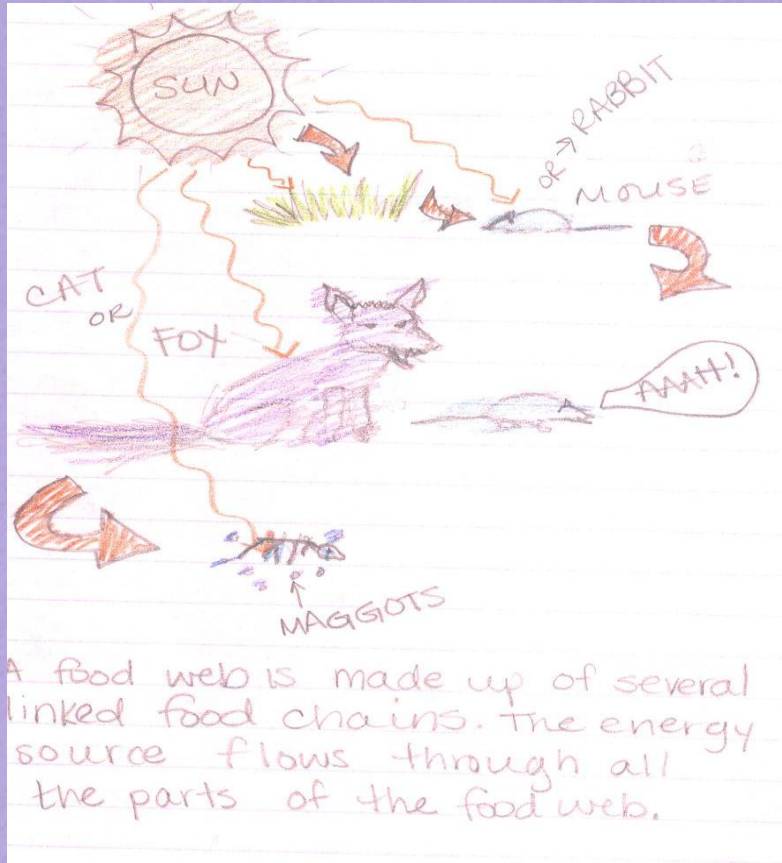 SUN
OR → RABBIT
MOUSE
CAT
OR
FOX
AAAH!
MAGGOTS
A food web is made up of several
linked food chains. The energy
source flows through all
the parts of the food web.